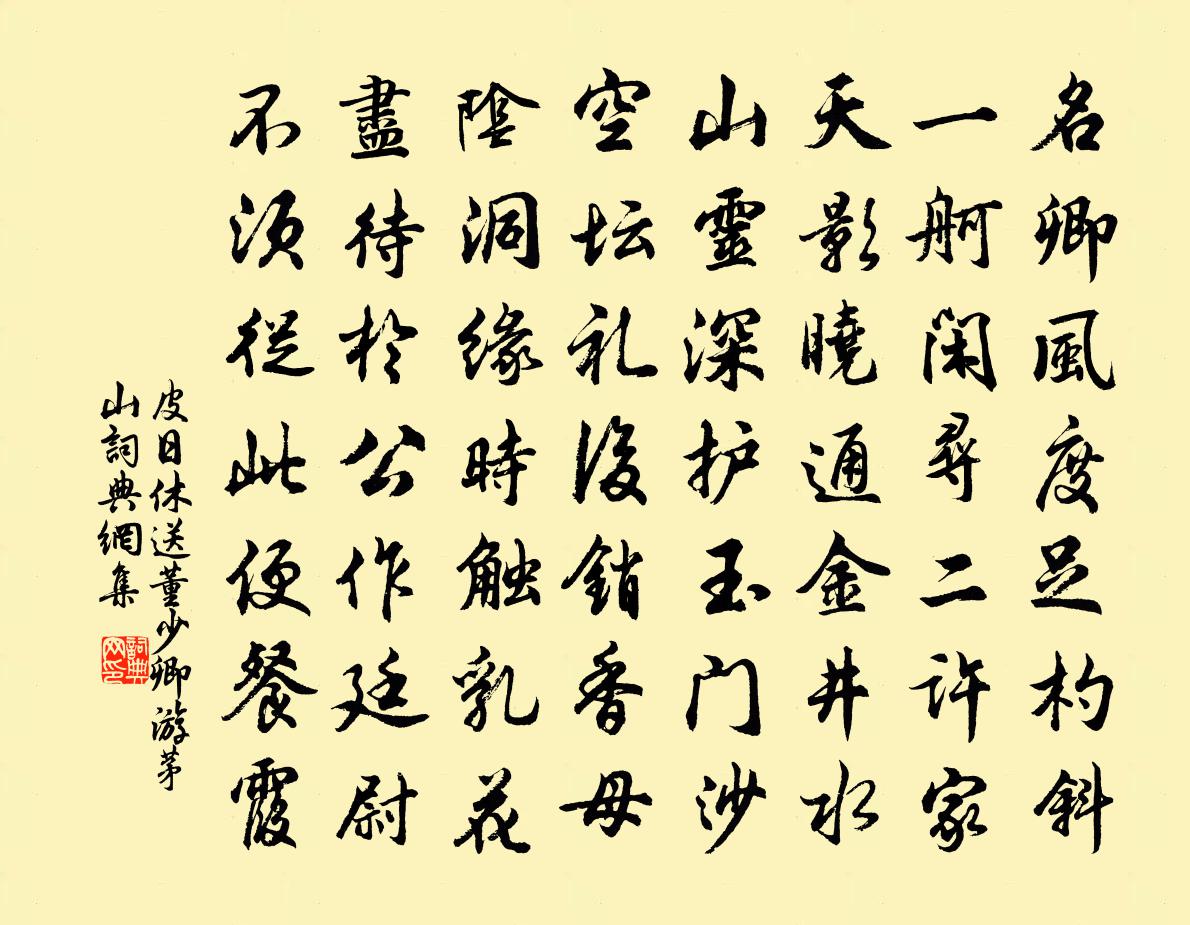 名卿風度足杓斜
一舸閑尋二許家
天影曉通金井水
山靈深护玉门沙
空坛礼後銷香母
陰洞緣時触乳花
盡待於公作廷尉
不須從此便餐霞
皮日休送董少卿游茅
山詞典網集
詞典
网印